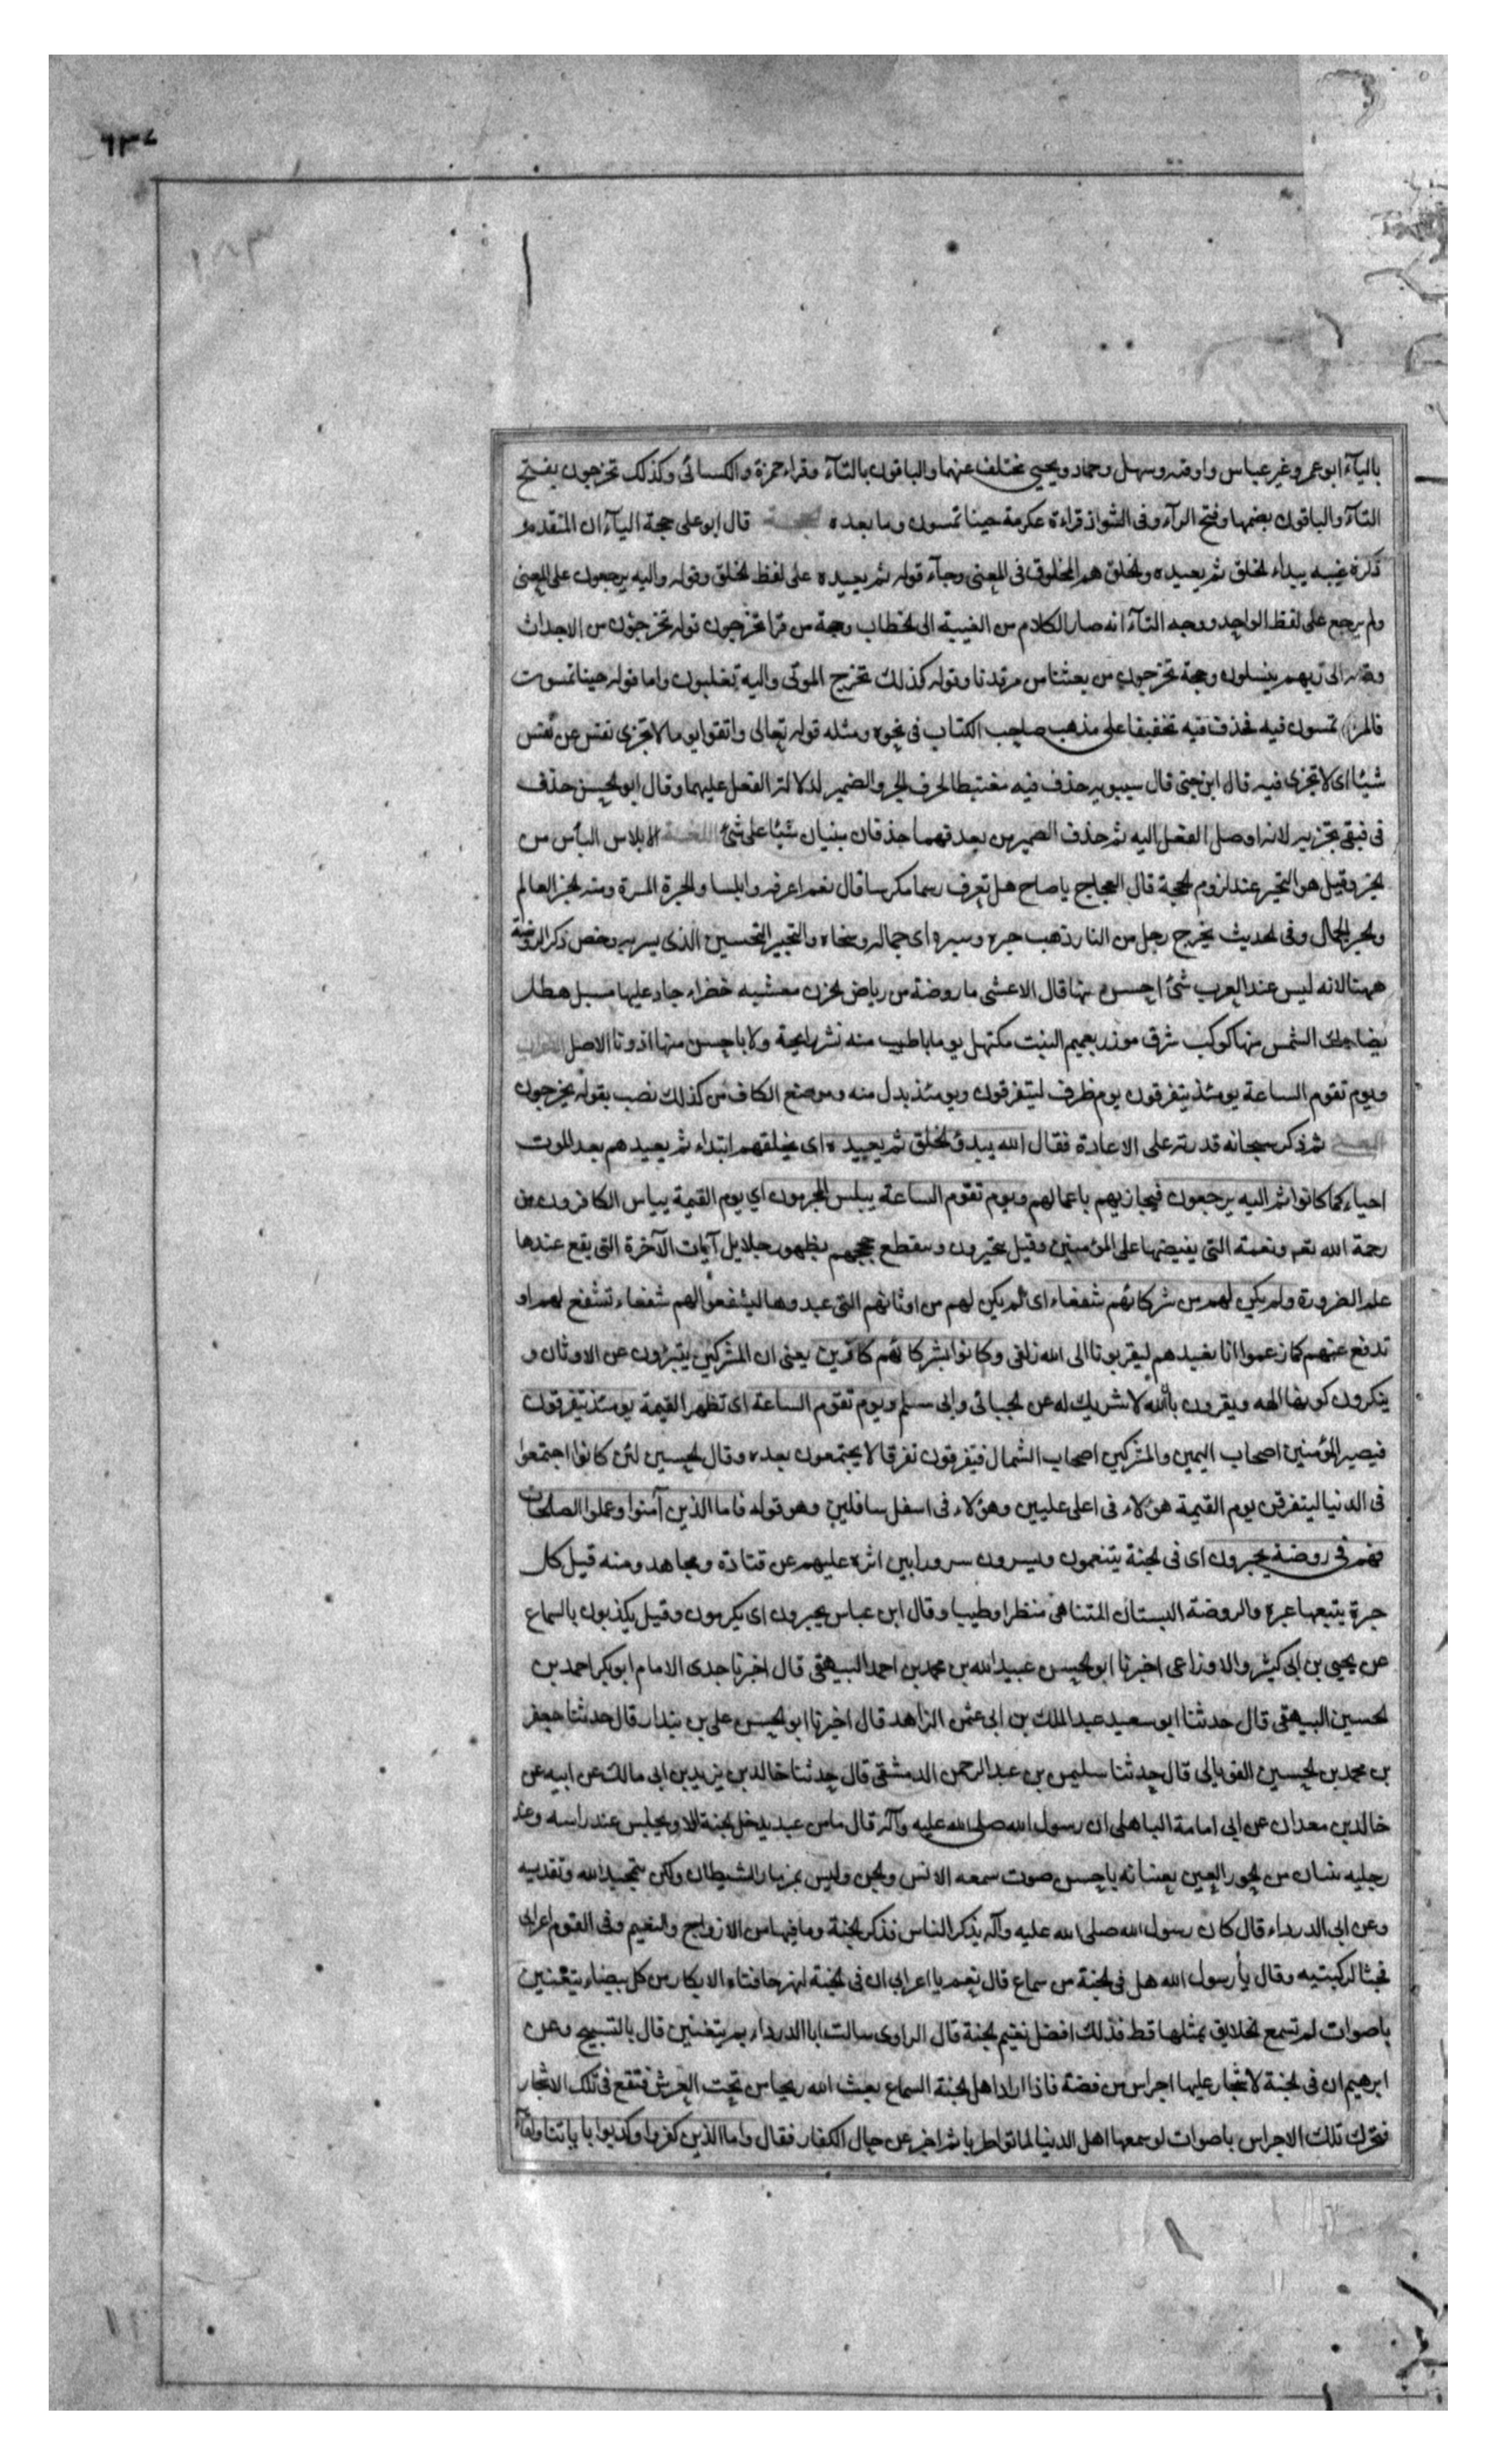 ٦٣٧
بالیآء ابو عمرو غیر عباس واوقیه وسهل وحماد ویحیی مختلف عنهما والباقون بالتآء وقراء حمزة والکسائی وکذلک تخرجون بفتح
التآء والباقون بضمها وفتح الرآء وفی الشواذ قراءة عکرمة حینا تمسون وما بعده الحجة قال ابو علی حجة الیآء ان المتقدم
ذکره غیبه یبداء لخلق ثم یعیده ولخلق هم المخلوق فی المعنی وجآء قوله ثم یعیده علی لفظ لخلق وقوله والیه یرجعون علی المعنی
ولم یرجع علی لفظ الواحد ووجه التآء انه صار الکلام من الغیبة الی لخطاب وحجة من قرا تخرجون قوله تخرجون من الاجداث
وقوله الی ربهم ینسلون وحجة تخرجون من بعثنا من مرقدنا وقوله کذلک تخرج الموتی والیه تقلبون واما قوله حینا تمسون
فالمراد تمسون فیه فحذف فیه تخفیفا علی مذهب صاحب الکتاب فی نحوه ومثله قوله تعالی واتقوا یوما لاتجزی نفس عن نفس
شیئا ای لا تجزی فیه قال ابن جنی قال سیبویه حذف فیه مغتبطا لحرف الجر والضمیر لدلالة الفعل علیهما وقال ابو لحسن حذف
فی فبقی تجزیه لانه اوصل الفعل الیه ثم حذف الضمیر من بعد فهما حذفان سنیان شیئا علی شئ اللغة الابلاس الیأس من
لخیر وقیل هو التحیر عند لزوم لحجة قال العجاج یا صاح هل تعرف رسما مکرسا قال نعم اعرفه وابلسا ولحبرة المسرة ومنه لحبر العالم
ولحبر الجمال وفی لحدیث یخرج رجل من النار ذهب حبره وسبره ای جماله وسخاه والتحبیر التحسین الذی یسر به وخص ذکر الروضة
ههنا لانه لیس عند العرب شئ احسن منها قال الاعشی ما روضة من ریاض لحزن معشبه خضراء جاد علیها مسبل هطل
یضاحک الشمس منها کوکب شرق موزر بعمیم النبت مکتهل یوما باطیب منه نشر رایحة ولا باحسن منها اذ دنا الاصل الاعراب
ویوم تقوم الساعة یومئذ یتفرقون یوم ظرف لیتفرقون ویومئذ بدل منه وموضع الکاف من کذلک نصب بقوله یخرجون
المعنی ثم ذکر سبحانه قدرته علی الاعادة فقال الله یبدؤ لخلق ثم یعیده ای یخلقهم ابتداء ثم یعیدهم بعد الموت
احیاء کما کانوا ثم الیه یرجعون فیجازیهم باعمالهم ویوم تقوم الساعة یبلس المجرمون ای یوم القیمة ییاس الکافرون من
رحمة الله تعم ونعمته التی یفیضها علی المؤمنین وقیل یتحیرون وینقطع حججهم بظهور جلایل آیات الآخرة التی یقع عندها
علم الضرورة ولم یکن لهم من شرکائهم شفعاء ای لم یکن لهم من اوثانهم التی عبدوها لیشفعوا لهم شفعاء تشفع لهم او
تدفع عنهم کما زعموا انا نعبدهم لیقربونا الی الله زلفی وکانوا بشرکائهم کافرین یعنی ان المشرکین یتبرؤن عن الاوثان و
ینکرون کونها الهه ویقرون بأن الله لا شریک له عن لجبائی وابی مسلم ویوم تقوم الساعة ای تظهر القیمة یومئذ یتفرقون
فیصیر المؤمنین اصحاب الیمین والمشرکین اصحاب الشمال فیتفرقون تفرقا لا یجتمعون بعده وقال لحسین لئن کانوا اجتمعوا
فی الدنیا لیتفرقن یوم القیمة هؤلاء فی اعلی علیین وهؤلاء فی اسفل سافلین وهو قوله فاما الذین آمنوا وعملوا الصلحات
فهم فی روضة یحبرون ای فی لجنة یتنعمون ویسرون سرورا یبین اثره علیهم عن قتادة ومجاهد ومنه قیل کل
حبرة یتبعها عبرة والروضة البستان المتناهی منظرا وطیبا وقال ابن عباس یحبرون ای یکرمون وقیل یلذذون بالسماع
عن یحیی بن ابی کثیر والاوزاعی اخبرنا ابو لحسن عبید الله بن محمد بن احمد البیهقی قال اخبرنا جدی الامام ابو بکر احمد بن
لحسین البیهقی قال حدثنا ابو سعید عبد الملک بن ابی عثمن الزاهد قال اخبرنا ابو لحسن علی بن بندار قال حدثنا جعفر
بن محمد بن لحسین الفریابی قال حدثنا سلیمن بن عبد الرحمن الدمشقی قال حدثنا خالد بن یزید بن ابی مالک عن ابیه عن
خالد بن معدان عن ابی امامة الباهلی ان رسول الله صلی الله علیه وآله قال ما من عبد یدخل لجنة الا ویجلس عند راسه وعند
رجلیه ثنتان من لحور العین یعنیانه باحسن صوت سمعه الانس ولجن ولیس بمزمار الشیطان ولکن بتحمید الله وتقدیسه
وعن ابی الدرداء قال کان رسول الله صلی الله علیه وآله یذکر الناس فذکر لجنة وما فیها من الازواج والنعیم وفی القوم اعرابی
فجثا لرکبتیه وقال یا رسول الله هل فی لجنة من سماع قال نعم یا اعرابی ان فی لجنة لنهرا حافتاه الابکار من کل بیضاء یتغنین
باصوات لم تسمع لخلایق بمثلها قط فذلک افضل نعیم لجنة قال الراوی سالت ابا الدرداء بم یتغنین قال بالتسبیح وعن
ابرهیم ان فی لجنة لاشجار علیها اجراس من فضة فاذا اراد اهل لجنة السماع بعث الله ریحا من تحت العرش فتقع فی تلک الاشجار
فتحرک تلک الاجراس باصوات لو سمعها اهل الدنیا لماتوا طربا ثم اخبر عن حال الکفار فقال واما الذین کفروا وکذبوا بایاتنا ولقآء